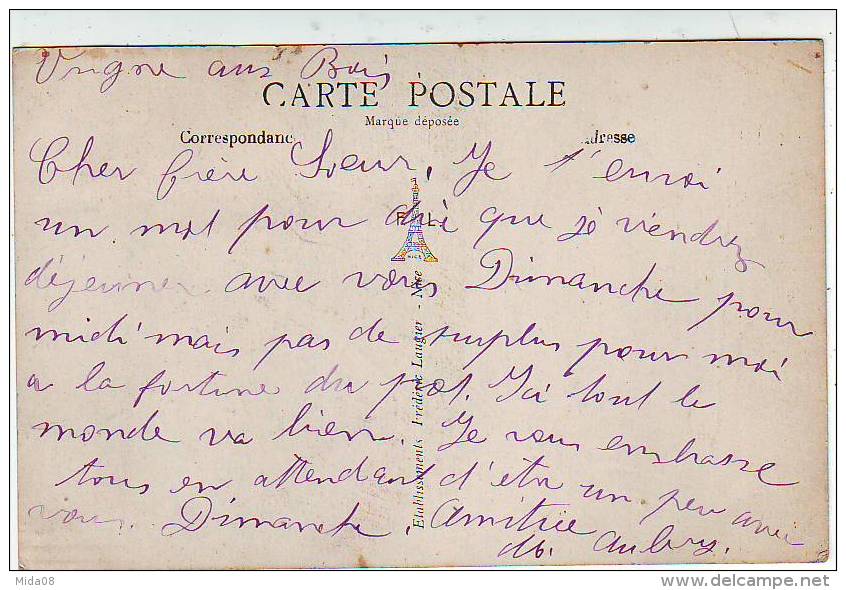 Vrigne aux Bois
CARTE POSTALE
Marque déposée
Correspondanc
dresse
Cher frère Soeur, Je t'envoi
un mot pour que je viendrez
déjeuner avec vous Dimanche pour
midi mais pas de surplus pour moi
a la fortune du pot. Ici tout le
monde va bien. Je vous embrasse
tous en attendant d'être un peu avec
vous. Dimanche. Amitiée
Aubry.
NICE
Etablissements Frédéric Laugier - Nice
Mida08
www.delcampe.net